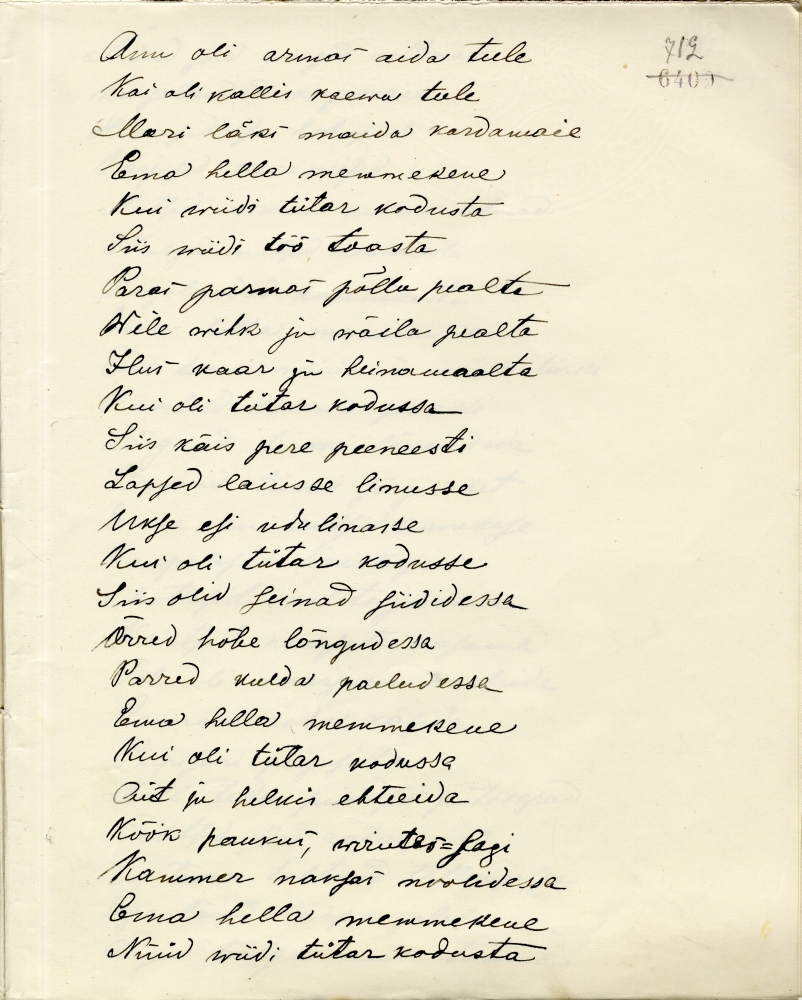 712
6409
Anu oli armas aida teele
Kai oli kallis kaewu teele
Mari läks maida kandamaie
Ema hella memmekene
Kui wiidi tütar kodusta
Siis wiidi töö toasta
Paras parmas põllu pealta
Wile wihk ju wäila pealta
Ilus kaar ju heinamaalta
Kui oli tütar kodussa
Siis käis pere peeneesti
Lapsed laiusse linusse
Ukse esi udulinasse
Kui oli tütar kodusse
Siis olid seinad siididessa
Õrred hõbe lõngudessa
Parred kulda paeludessa
Ema hella memmekene
Kui oli tütar kodussa
Ait ju helkis ehteida
Köök paukus, sagi
Kammer naksas noolidessa
Ema hella memmekene
Nüüd wiidi tütar kodusta